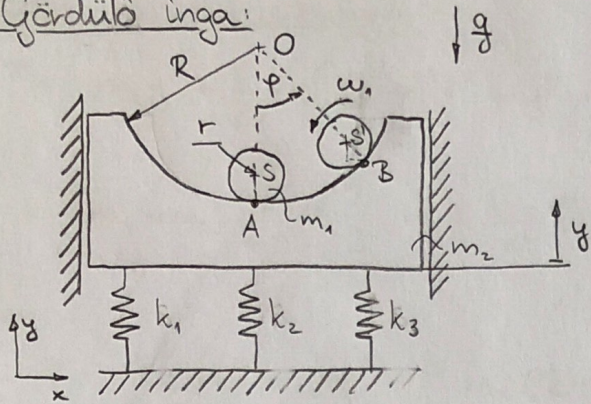 Gördülő inga:
O
g
R
φ
ω₁
r
S
S
B
A
m₁
m₂
y
k₁
k₂
k₃
y
x